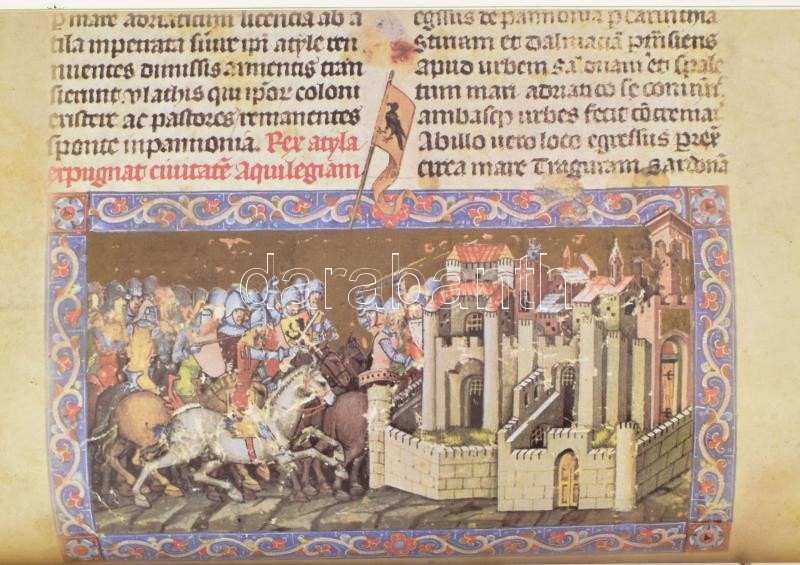 p mare adriaticum licencia ab a
tila inpetrata sivire ipi atyle ren
nuentes dimissis armentis tran
sierunt vlathis qui ipor coloni
existere ac pastores remanentes
sponte in pannonia. Rex atyla
expugnat civitate Aquilegiam
egssus de pannonia p carinthia
Stiriam et Dalmacia
apud urbem et spale
tum mari adriatico se
ambasqz urbes fecit
Ab illo vero loco egressus
circa mare Traguram Sardona
darabanth